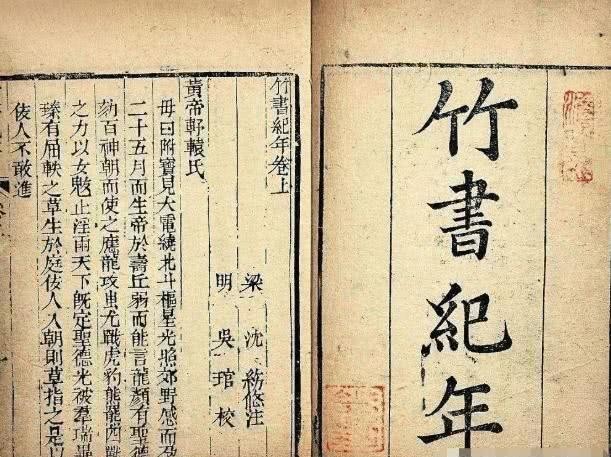 竹書紀年
竹書紀年卷上
梁 沈 約 注
明 吳 琯 校
黃帝軒轅氏
母曰附寶見大電繞北斗樞星光照郊野感而孕
二十五月而生帝於壽丘弱而能言龍顏有聖德
劾百神朝而使之應龍攻蚩尤戰虎豹熊羆四
之力以女魃止淫雨天下既定聖德光被羣瑞畢
臻有屈軼之草生於庭佞人入朝則草指之是以
佞人不敢進